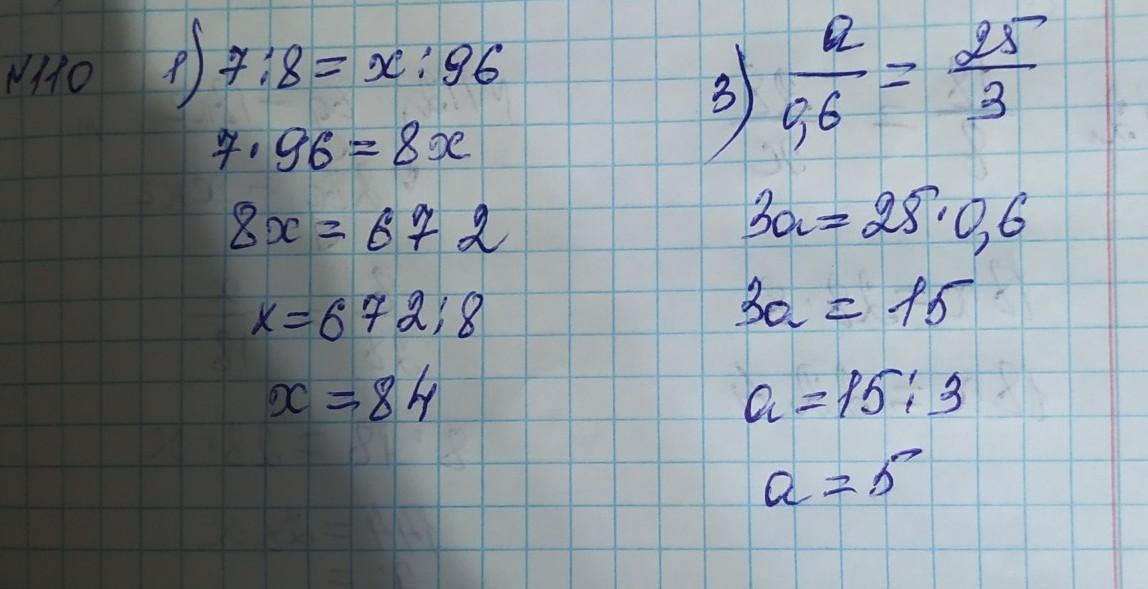 №110 1) 7:8 = x:96
7·96 = 8x
8x = 672
x = 672:8
x = 84
3) a/0,6 = 25/3
3a = 25·0,6
3a = 15
a = 15:3
a = 5